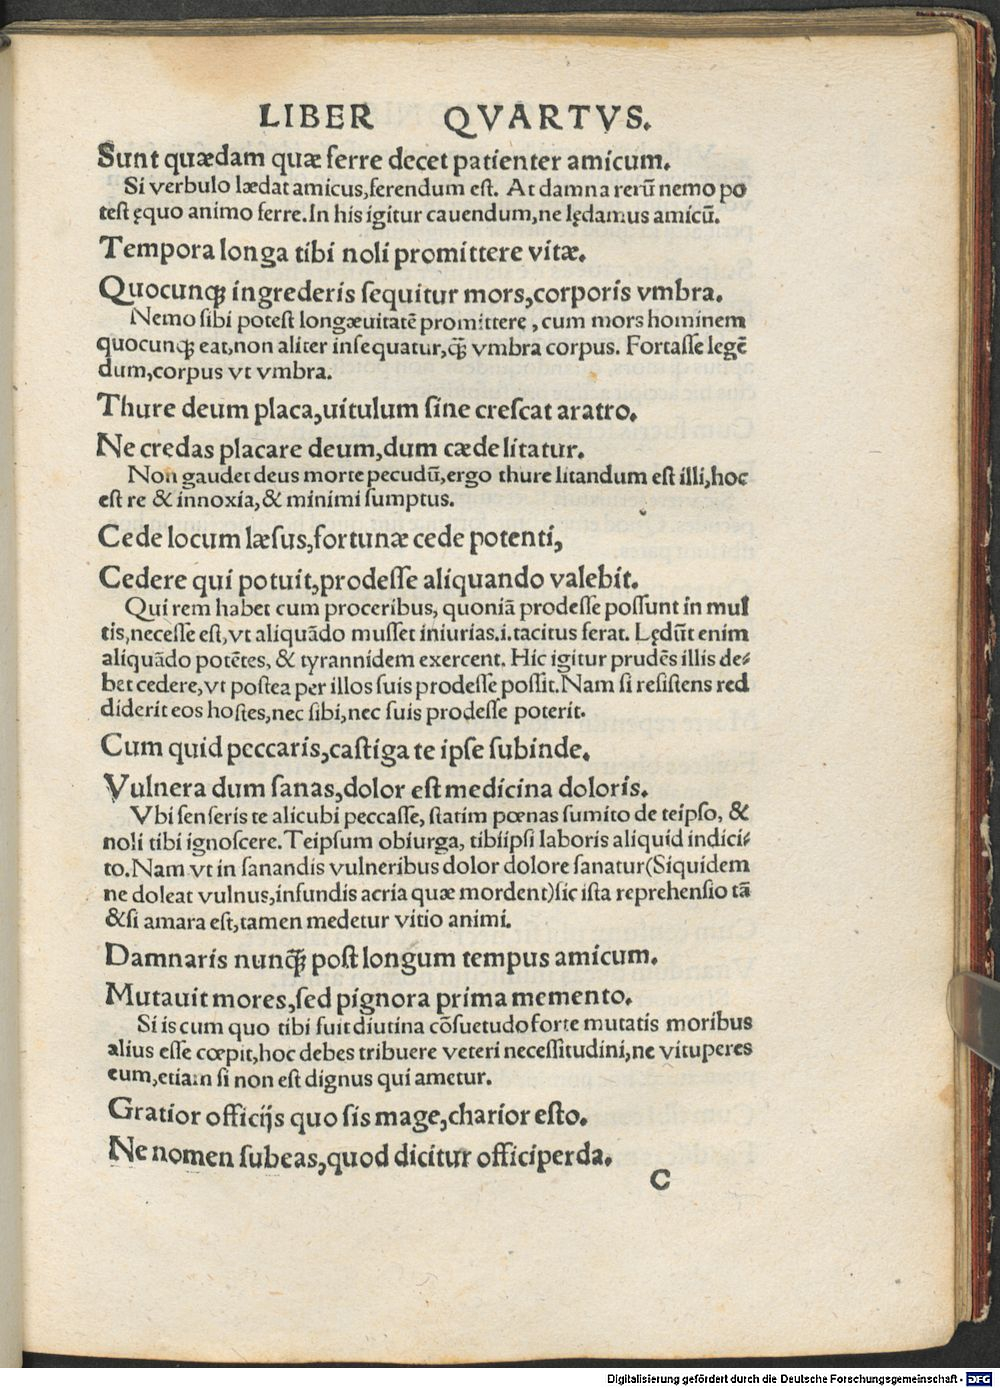 LIBER QVARTVS.
Sunt quædam quæ ferre decet patienter amicum.
Si verbulo lædat amicus,ferendum est. At damna rerū nemo po
test ęquo animo ferre.In his igitur cauendum,ne lędamus amicū.
Tempora longa tibi noli promittere vitæ.
Quocunqꝫ ingrederis sequitur mors,corporis vmbra.
Nemo sibi potest longæuitatē promittere, cum mors hominem
quocunqꝫ eat,non aliter insequatur,q̄ꝫ vmbra corpus. Fortasse legē
dum,corpus vt vmbra.
Thure deum placa,uitulum sine crescat aratro.
Ne credas placare deum,dum cæde litatur.
Non gaudet deus morte pecudū,ergo thure litandum est illi,hoc
est re & innoxia,& minimi sumptus.
Cede locum læsus,fortunæ cede potenti,
Cedere qui potuit,prodesse aliquando valebit.
Qui rem habet cum proceribus, quoniā prodesse possunt in mul
tis,necesse est,vt aliquādo musset iniurias.i.tacitus ferat. Lędūt enim
aliquādo potētes, & tyrannidem exercent. Hic igitur prudēs illis de⸗
bet cedere,vt postea per illos suis prodesse possit.Nam si resistens red
diderit eos hostes,nec sibi,nec suis prodesse poterit.
Cum quid peccaris,castiga te ipse subinde.
Vulnera dum sanas,dolor est medicina doloris.
Vbi senseris te alicubi peccasse, statim pœnas sumito de teipso, &
noli tibi ignoscere.Teipsum obiurga, tibiipsi laboris aliquid indici⸗
to.Nam vt in sanandis vulneribus dolor dolore sanatur(Siquidem
ne doleat vulnus,infundis acria quæ mordent)sic ista reprehensio tā
&si amara est,tamen medetur vitio animi.
Damnaris nunq̄ꝫ post longum tempus amicum.
Mutauit mores,sed pignora prima memento.
Si is cum quo tibi fuit diutina cōsuetudo forte mutatis moribus
alius esse cœpit,hoc debes tribuere veteri necessitudini,ne vituperes
eum,etiam si non est dignus qui ametur.
Gratior officijs quo sis mage,charior esto.
Ne nomen subeas,quod dicitur officiperda.
C
Digitalisierung gefördert durch die Deutsche Forschungsgemeinschaft - DFG